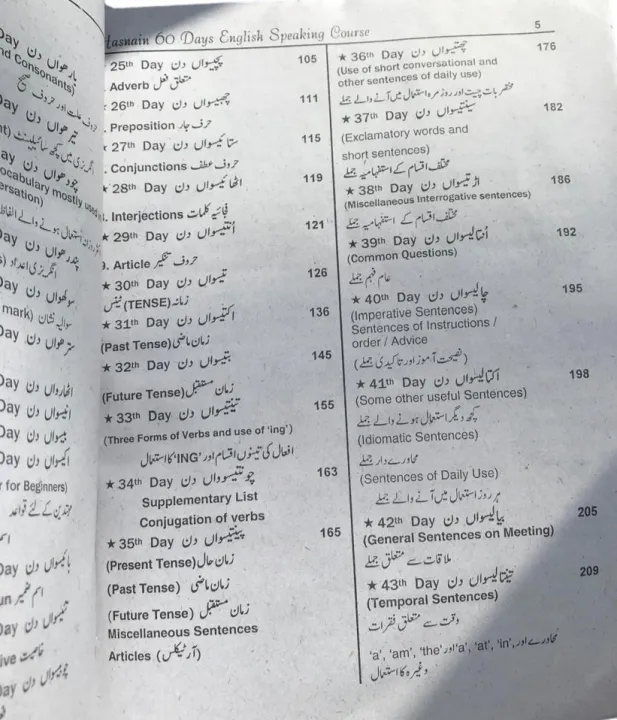 Hasnain 60 Days English Speaking Course
5
25th Day پچیسواں دن 105
. Adverb متعلق فعل
★ 26th Day چھبیسواں دن 111
. Preposition حرف جار
★ 27th Day ستائیسواں دن 115
. Conjunctions حروف عطف
★ 28th Day اٹھائیسواں دن 119
. Interjections فجائیہ کلمات
★ 29th Day انتیسواں دن 121
9. Article حرف تنکیر
★ 30th Day تیسواں دن 126
زمانہ (TENSE) ٹینس
★ 31th Day اکتیسواں دن 136
(Past Tense) زمان ماضی
★ 32th Day بتیسواں دن 145
(Future Tense) زمان مستقبل
★ 33th Day تینتیسواں دن 155
(Three Forms of Verbs and use of 'ing')
افعال کی تینوں اقسام اور 'ING' کا استعمال
★ 34th Day چونتیسواں دن 163
Supplementary List
Conjugation of verbs
★ 35th Day پینتیسواں دن 165
(Present Tense) زمان حال
(Past Tense) زمان ماضی
(Future Tense) زمان مستقبل
Miscellaneous Sentences
Articles (آرٹیکلس)
★ 36th Day چھتیسواں دن 176
(Use of short conversational and
other sentences of daily use)
مختصر بات چیت اور روزمرہ استعمال میں آنے والے جملے
★ 37th Day سینتیسواں دن 182
(Exclamatory words and
short sentences)
مختلف اقسام کے استفہامیہ جملے
★ 38th Day اڑتیسواں دن 186
(Miscellaneous Interrogative sentences)
مختلف اقسام کے استفہامیہ جملے
★ 39th Day انتالیسواں دن 192
(Common Questions)
عام فہم جملے
★ 40th Day چالیسواں دن 195
(Imperative Sentences)
Sentences of Instructions /
order / Advice
(نصیحت آموز اور تاکیدی جملے)
★ 41th Day اکتالیسواں دن 198
(Some other useful Sentences)
کچھ دیگر استعمال ہونے والے جملے
(Idiomatic Sentences)
محاورے دار جملے
(Sentences of Daily Use)
ہر روز استعمال میں آنے والے جملے
★ 42th Day بیالیسواں دن 205
(General Sentences on Meeting)
ملاقات سے متعلق جملے
★ 43th Day تینتالیسواں دن 209
(Temporal Sentences)
وقت سے متعلق فقرات
محاورے اور 'a', 'am', 'the' اور 'a', 'at', 'in',
وغیرہ کا استعمال
Day بارھواں دن
nd consonants)
حروف علت اور حروف صحیح
Day تیرھواں دن
چودھواں دن
ocabulary mostly used
ersation)
Day پندرھواں دن
Day سولھواں دن
mark) سوالیہ نشان
Day سترھواں دن
Day اٹھارواں دن
Day انیسواں دن
Day بیسواں دن
Day اکیسواں دن
r for Beginners)
مبتدین کے لئے قواعد
Day بائیسواں دن
un اسم ضمیر
Day تئیسواں دن
ive
Day چوبیسواں دن